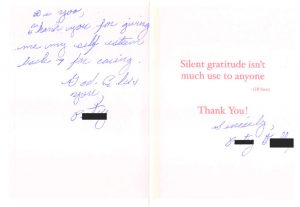 Thank you for giving
me my self esteem
back & for caring.
God Bless
you,
Silent gratitude isn't
much use to anyone
Thank You!
Sincerely,